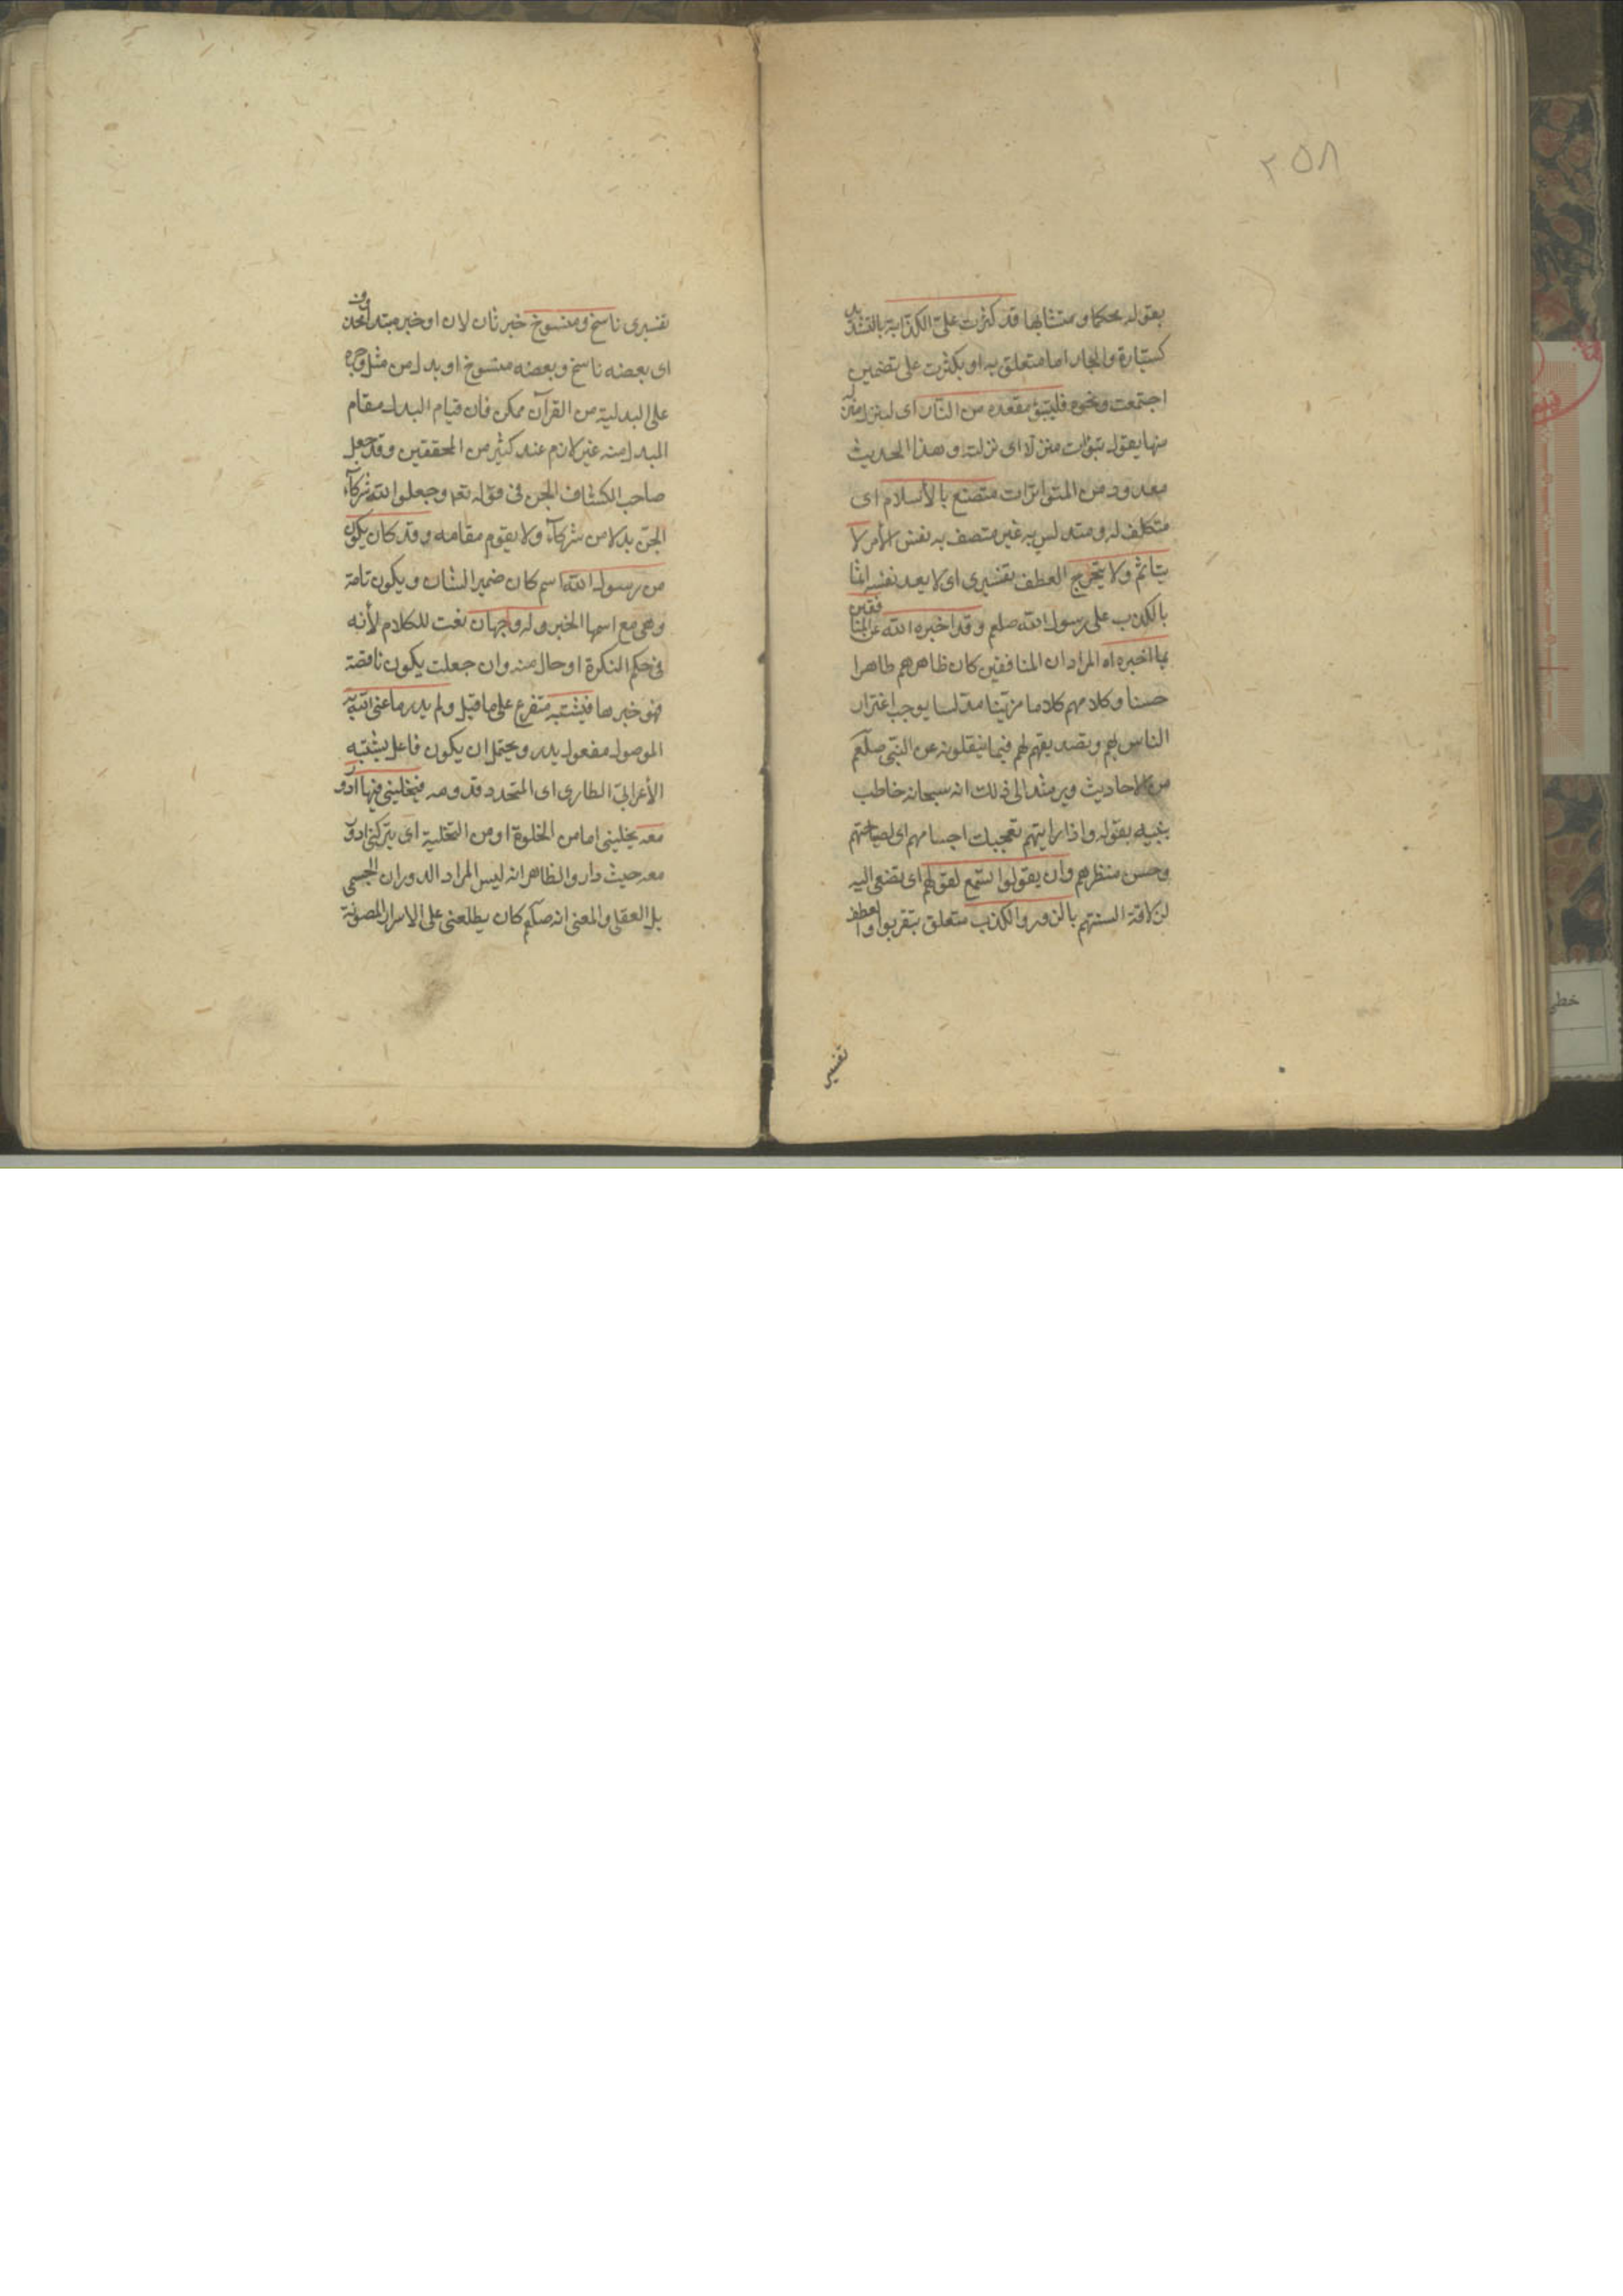 ٢٥٨
بقوله محكما و متشابها قد كثرت علىّ الكذّابة بالتشديد
كسيّارة والجار اما متعلق به او بكثرت على تضمين
اجتمعت ونحوه فليتبوّء مقعده من النّار اى لينزل منزله
منها يقول تبوّات منزلا اى نزلته وهذا الحديث
معدود من المتواترات متصنع بالأسلام اى
متكلف له ومتدلس به غير متصف به نفس الأمر لا
يتاثم ولا يتحرّج العطف تفسيرى اى لا يعد نفسه اثما
بالكذب على رسول الله صلعم وقد اخبره الله عن المنافقين
بما اخبره اه المراد ان المنافقين كان ظاهرهم ظاهرا
حسنا وكلامهم كلاما مزيّنا مدلسا يوجب اغترار
الناس لهم وتصديقهم لهم فيما ينقلونه عن النّبى صلّعم
من الاحاديث ويرشد الى ذلك انه سبحانه خاطب
نبيه بقوله واذا رايتهم تعجبك اجسامهم اى لصباحتهم
وحسن منظرهم وان يقولوا تسمع لقولهم اى تصغى اليه
لذلاقة السنتهم بالزور والكذب متعلق بتقربوا والعطف
تفسير
تفسيرى ناسخ ومنسوخ خبر ثان لان او خبر مبتدا محذوف
اى بعضه ناسخ وبعضه منسوخ او بدل من مثل وجره
على البدلية من القرآن ممكن فان قيام البدل مقام
المبدل منه غير لازم عند كثير من المحققين وقد جعل
صاحب الكشاف الجن فى قوله تعم وجعلوا لله شركآء
الجنّ بدلا من شركآء ولا يقوم مقامه وقد كان يكون
من رسول الله اسم كان ضمير الشان ويكون تامة
وهى مع اسمها الخبر وله وجهان نعت للكلام لأنه
فى حكم النكرة او حال منه وان جعلت يكون ناقصة
فهو خبرها فيشتبه متفرع على ما قبل ولم يدر ما عنى الله به
الموصول مفعول يدر ويحتمل ان يكون فاعل يشتبه
الأعرابىّ الطارى اى المتجدد قدومه فيخلينى فيها ادور
معه يخلينى اما من الخلوة او من التخلية اى يتركنى ادور
معه حيث دار والظاهر انه ليس المراد الدوران الجسمى
بل العقلى والمعنى انه صلّعم كان يطلعنى على الاسرار المصونة
خطى